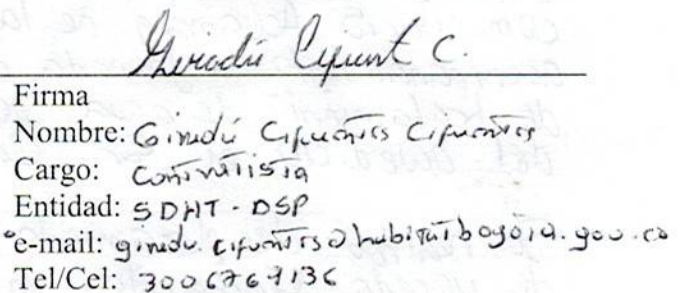 Giradú Cifuent C.
Firma
Nombre: Giradú Cifuentes Cifuentes
Cargo: Contratista
Entidad: SDHT - DSP
e-mail: giradu.cifuentes@habitatbogota.gov.co
Tel/Cel: 3006767136